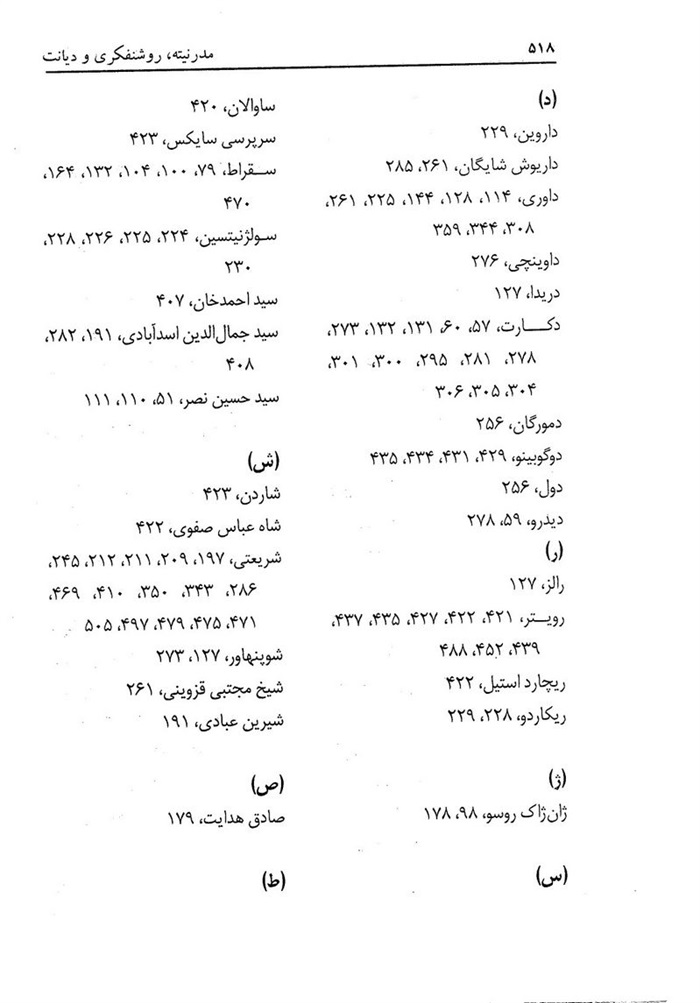 ۵۱۸
مدرنیته، روشنفکری و دیانت
(د)
داروین، ۲۲۹
داریوش شایگان، ۲۶۱، ۲۸۵
داوری، ۱۱۴، ۱۲۸، ۱۴۴، ۲۲۵، ۲۶۱،
۳۰۸، ۳۴۴، ۳۵۹
داوینچی، ۲۷۶
دریدا، ۱۲۷
دکــارت، ۵۷، ۶۰، ۱۳۱، ۱۳۲، ۲۷۳،
۲۷۸، ۲۸۱، ۲۹۵، ۳۰۰، ۳۰۱،
۳۰۴، ۳۰۵، ۳۰۶
دمورگان، ۲۵۶
دوگوبینو، ۴۲۹، ۴۳۱، ۴۳۴، ۴۳۵
دول، ۲۵۶
دیدرو، ۵۹، ۲۷۸
(ر)
رالز، ۱۲۷
رویــتر، ۴۲۱، ۴۲۲، ۴۲۷، ۴۳۵، ۴۳۷،
۴۳۹، ۴۵۲، ۴۸۸
ریچارد استیل، ۴۲۲
ریکاردو، ۲۲۸، ۲۲۹
(ژ)
ژان‌ژاک روسو، ۹۸، ۱۷۸
(س)
ساوالان، ۴۲۰
سرپرسی سایکس، ۴۲۳
ســقراط، ۷۹، ۱۰۰، ۱۰۴، ۱۳۲، ۱۶۴،
۴۷۰
سـولژنیتسین، ۲۲۴، ۲۲۵، ۲۲۶، ۲۲۸،
۲۳۰
سید احمدخان، ۴۰۷
سید جمال‌الدین اسدآبادی، ۱۹۱، ۲۸۲،
۴۰۸
سید حسین نصر، ۵۱، ۱۱۰، ۱۱۱
(ش)
شاردن، ۴۲۳
شاه عباس صفوی، ۴۲۲
شریعتی، ۱۹۷، ۲۰۹، ۲۱۱، ۲۱۲، ۲۴۵،
۲۸۶، ۳۴۳، ۳۵۰، ۴۱۰، ۴۶۹،
۴۷۱، ۴۷۵، ۴۷۹، ۴۹۷، ۵۰۵
شوپنهاور، ۱۲۷، ۲۷۳
شیخ مجتبی قزوینی، ۲۶۱
شیرین عبادی، ۱۹۱
(ص)
صادق هدایت، ۱۷۹
(ط)